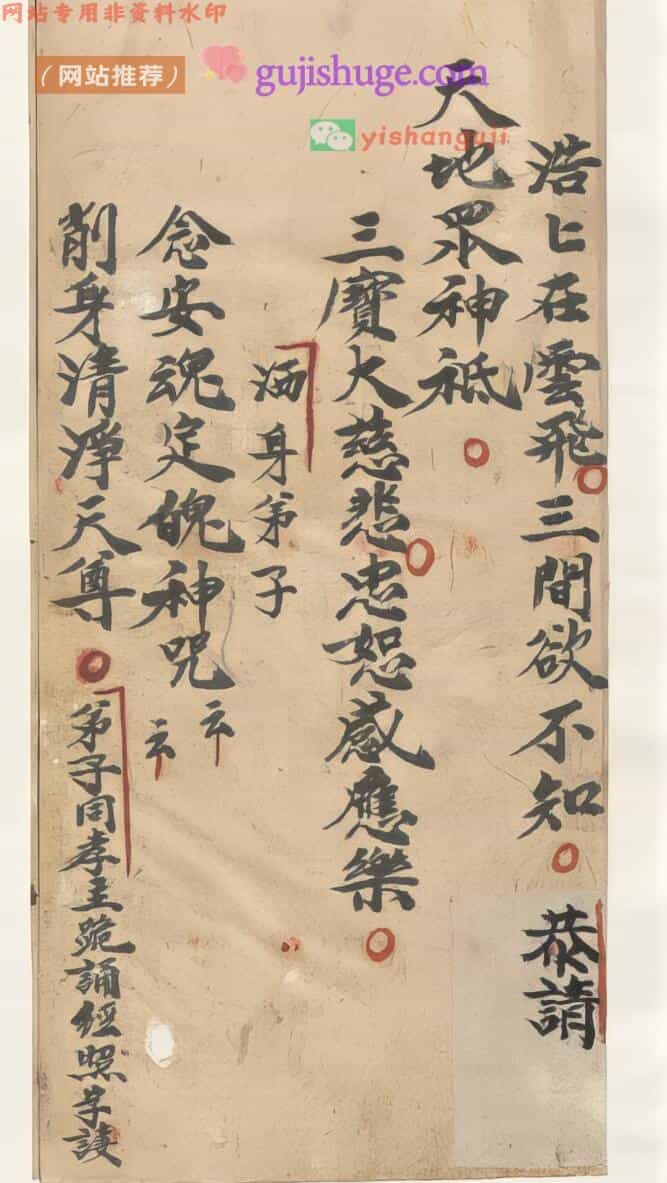 网站专用非资料水印
（网站推荐）
gujishuge.com
yishanguji
浩匕在雲飛三間欲不知 恭請
天地眾神祗
三寶大慈悲忠恕感應樂
洒身弟子
念安魂定魄神咒 云云
削身清淨天尊 弟子同孝主跪誦經照